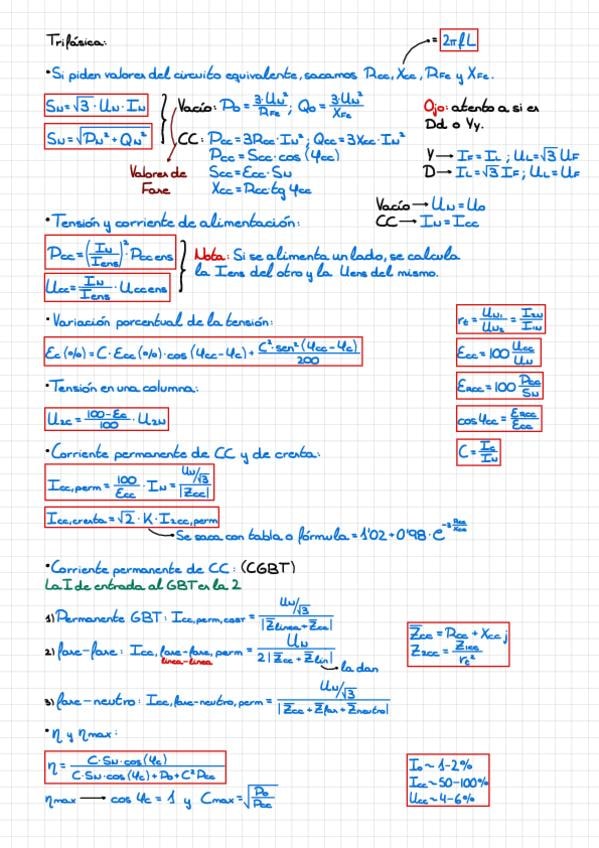 Trifásica:
= 2πfL
·Si piden valores del circuito equivalente, sacamos Rcc, Xcc, RFe y XFe.
SN=√3·UN·IN
SN=√(PN²+QN²)
Vacío: P0 = 3·UN²/RFe ; Q0 = 3·UN²/XFe
CC: Pcc=3Rcc·IN²; Qcc=3Xcc·IN²
Pcc=Scc·cos(φcc)
Scc=Ecc·SN
Xcc=Rcc·tg φcc
Valores de
Fase
Ojo: atento a si es
Dd o Yy.
Y → IF=IL ; UL=√3 UF
D → IL=√3 IF; UL=UF
Vacío → UN=U0
CC → IN=Icc
·Tensión y corriente de alimentación:
Pcc=(IN/Iens)²·Pcc ens
Ucc=IN/Iens·Ucc ens
Nota: Si se alimenta un lado, se calcula
la Iens del otro y la Uens del mismo.
·Variación porcentual de la tensión:
Ec(%)=C·Ecc(%)·cos(φcc-φc)+C²·sen²(φcc-φc)/200
·Tensión en una columna:
U2c=(100-Ec)/100·U2N
rt=UN1/UN2=I2N/I1N
Ecc=100 Ucc/UN
ERcc=100 Pcc/SN
cosφcc=ERcc/Ecc
C=Ic/IN
·Corriente permanente de CC y de cresta:
Icc,perm=100/Ecc·IN=(UN/√3)/|Zcc|
Icc,cresta=√2·K·I2cc,perm
Se saca con tabla o fórmula=1'02+0'98·e^(-3Rcc/Xcc)
·Corriente permanente de CC: (CGBT)
La I de entrada al GBT es la 2
1) Permanente GBT: Icc,perm,cgbt=(UN/√3)/|Z̄linea+Z̄cc|
2) fase-fase: Icc,fase-fase,perm=UN/(2|Z̄cc+Z̄lin|)
linea-linea
la dan
3) fase-neutro: Icc,fase-neutro,perm=(UN/√3)/|Z̄cc+Z̄fas+Z̄neutro|
Z̄cc=Rcc+Xcc j
Z2cc=Z1cc/rt²
·η y ηmax:
η=C·SN·cos(φc)/(C·SN·cos(φc)+P0+C²Pcc)
ηmax → cos φc=1 y Cmax=√(P0/Pcc)
I0~1-2%
Icc~50-100%
Ucc~4-6%